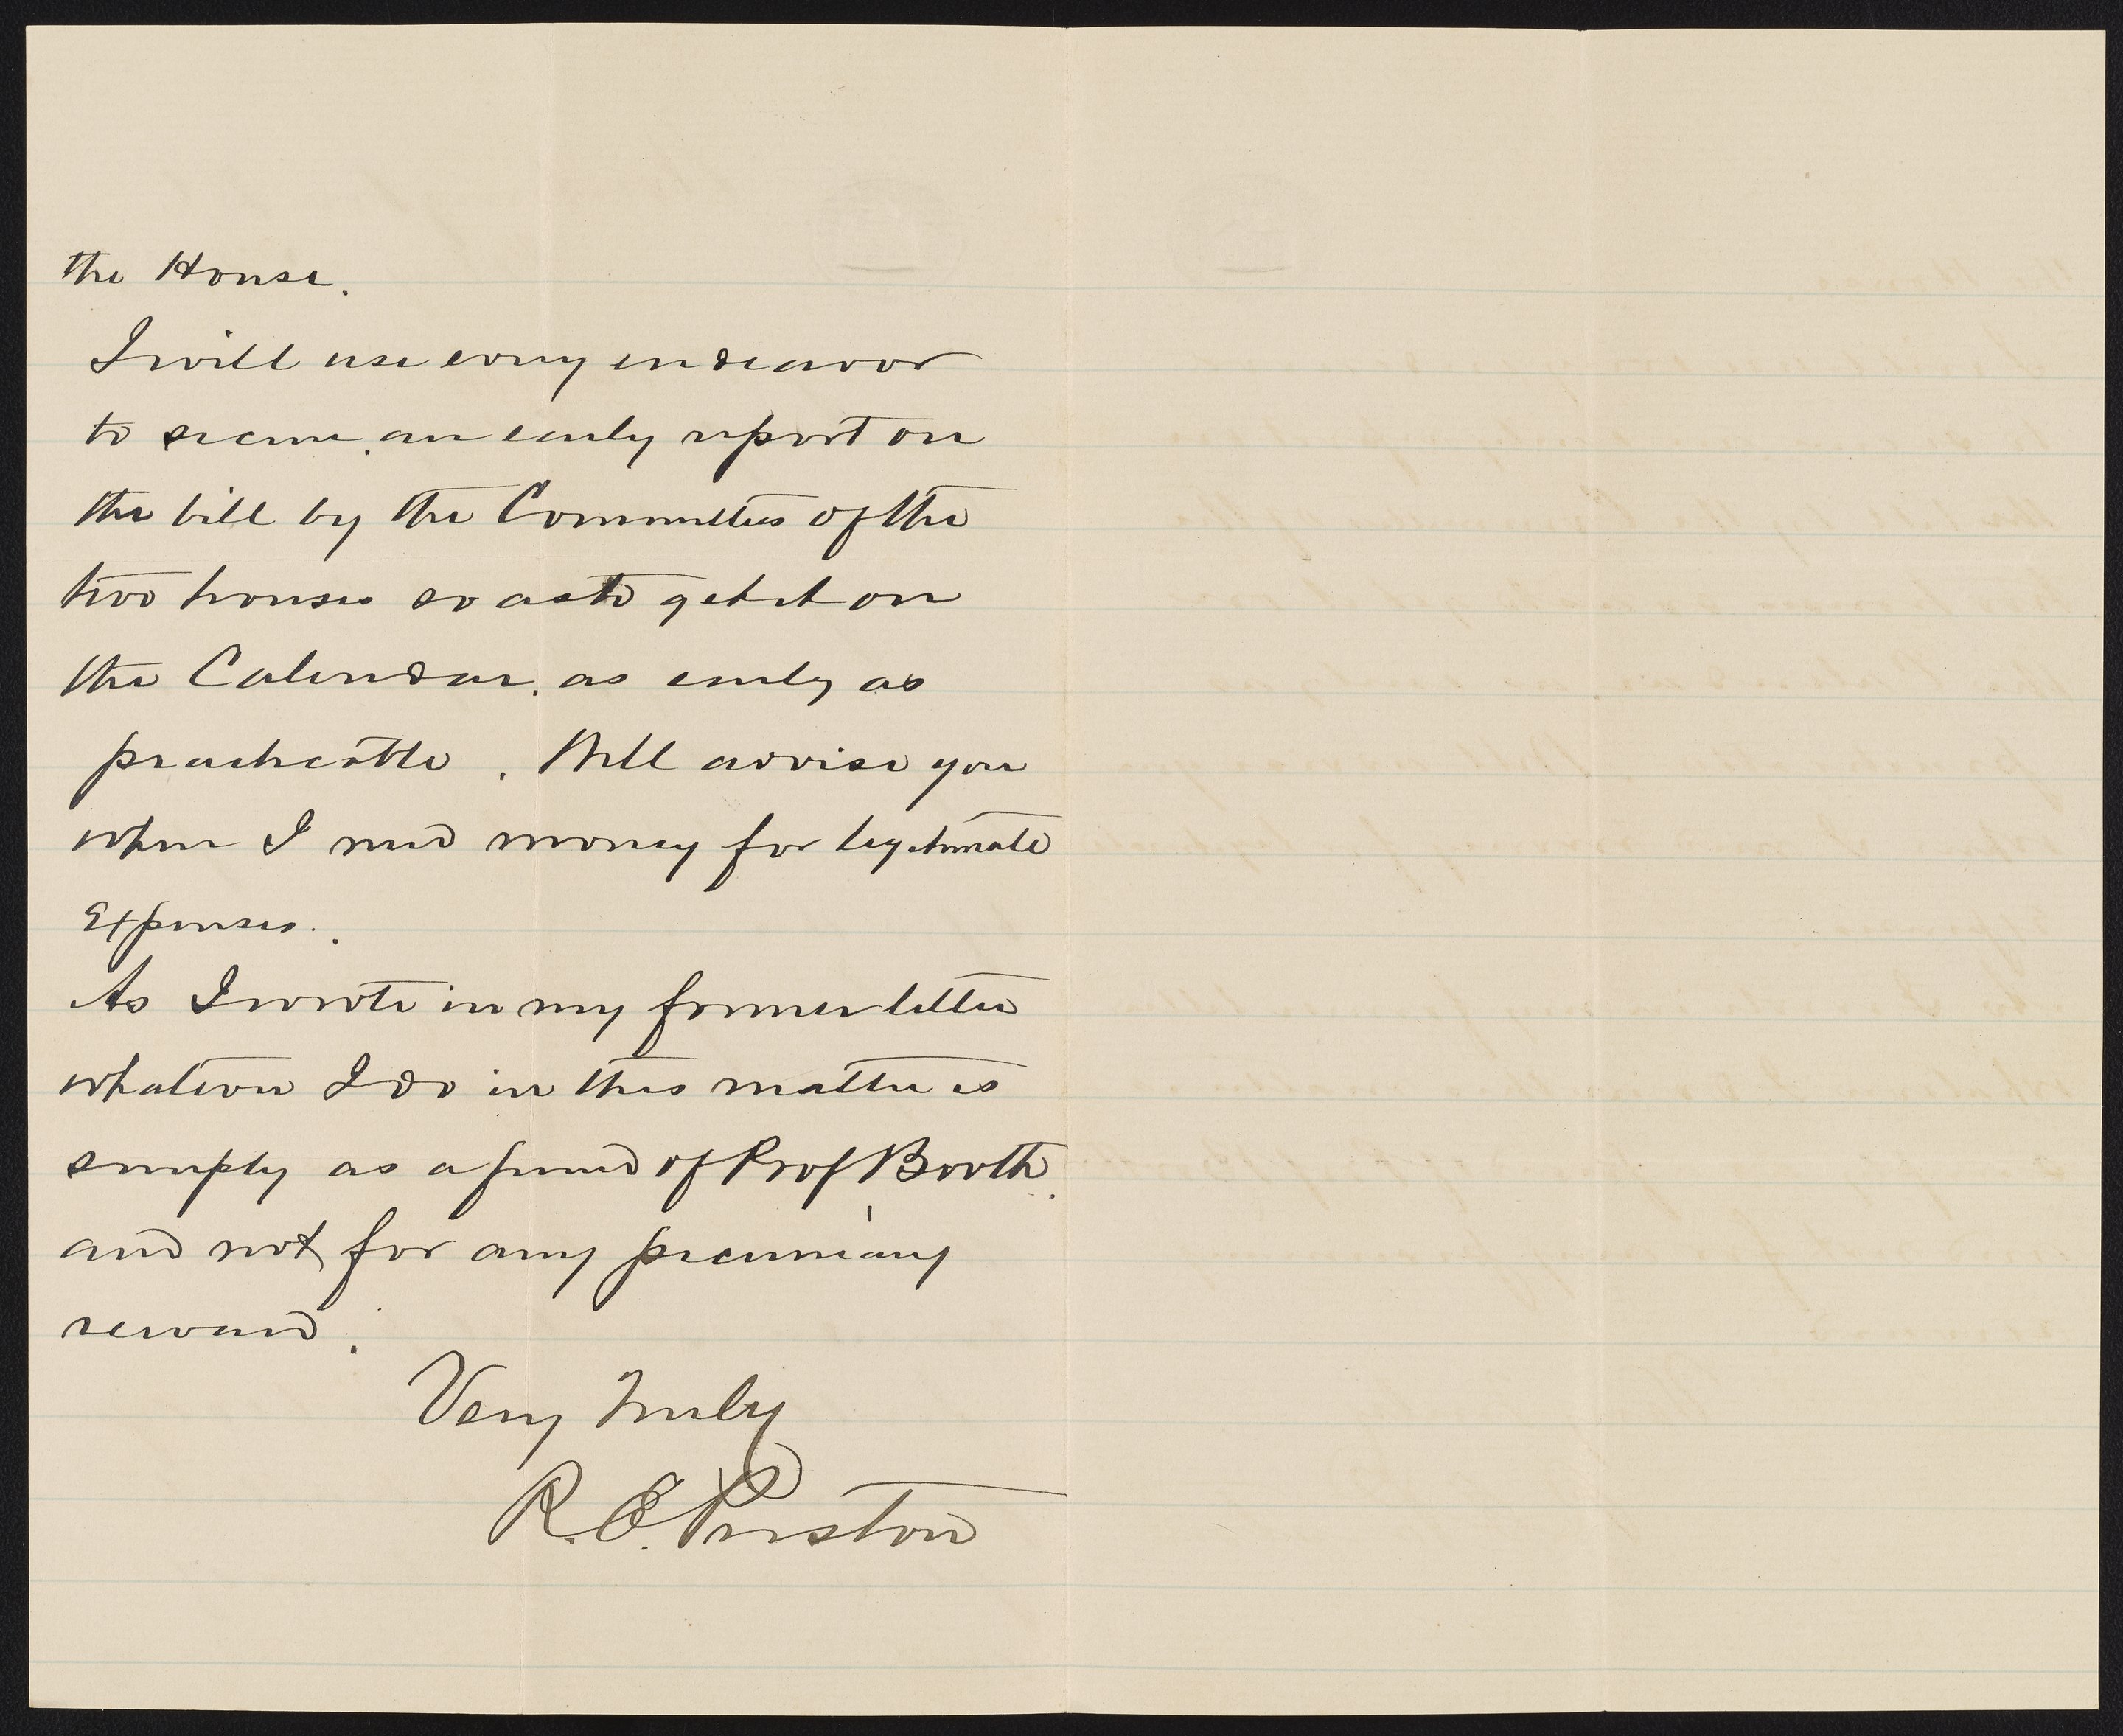 the House.
I will use every endeavor
to secure an early report on
the bill by the Committees of the
two houses so as to get it on
the Calendar. as early as
practicable. Will advise you
when I need money for legitimate
Expenses.
As I wrote in my former letter
whatever I do in this matter is
simply as a friend of Prof Booth.
and not for any pecuniary
reward.
Very truly
R. E. Preston